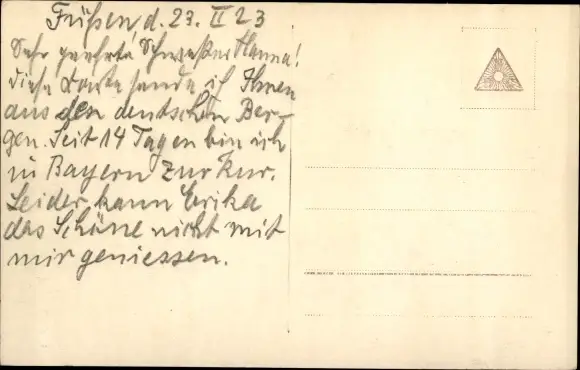 Füßen, d. 23. II 23
Sehr geehrte Schwester Hanna!
Diese Karte sende ich Ihnen
aus den deutschen Ber-
gen. Seit 14 Tagen bin ich
in Bayern zur Kur.
Leider kann Erika
das Schöne nicht mit
mir geniessen.